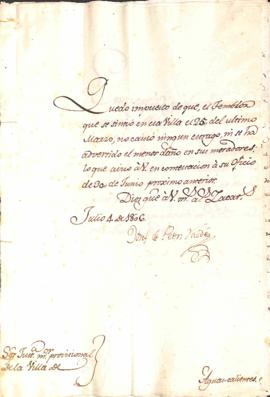 Quedo impuesto de que, el Temblor
que se sintió en esa Villa el 25 del ultimo
Marzo, no causó ningun estrago, ni se ha
advertido el menor daño en sus moradores,
lo que aviso à V. en contestacion à su Oficio
de 30 de Junio proximo anterior.
Dios gue à V. ms. as. Zacat.s
Julio 4 de 1806.
de la Villa de
Aguascalientes.